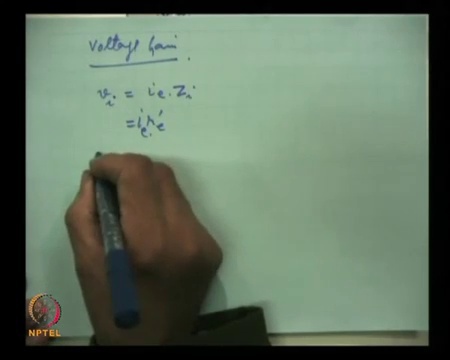 Voltage Gain.
v_i = i_e . Z_i
= i_e . r_e'
NPTEL